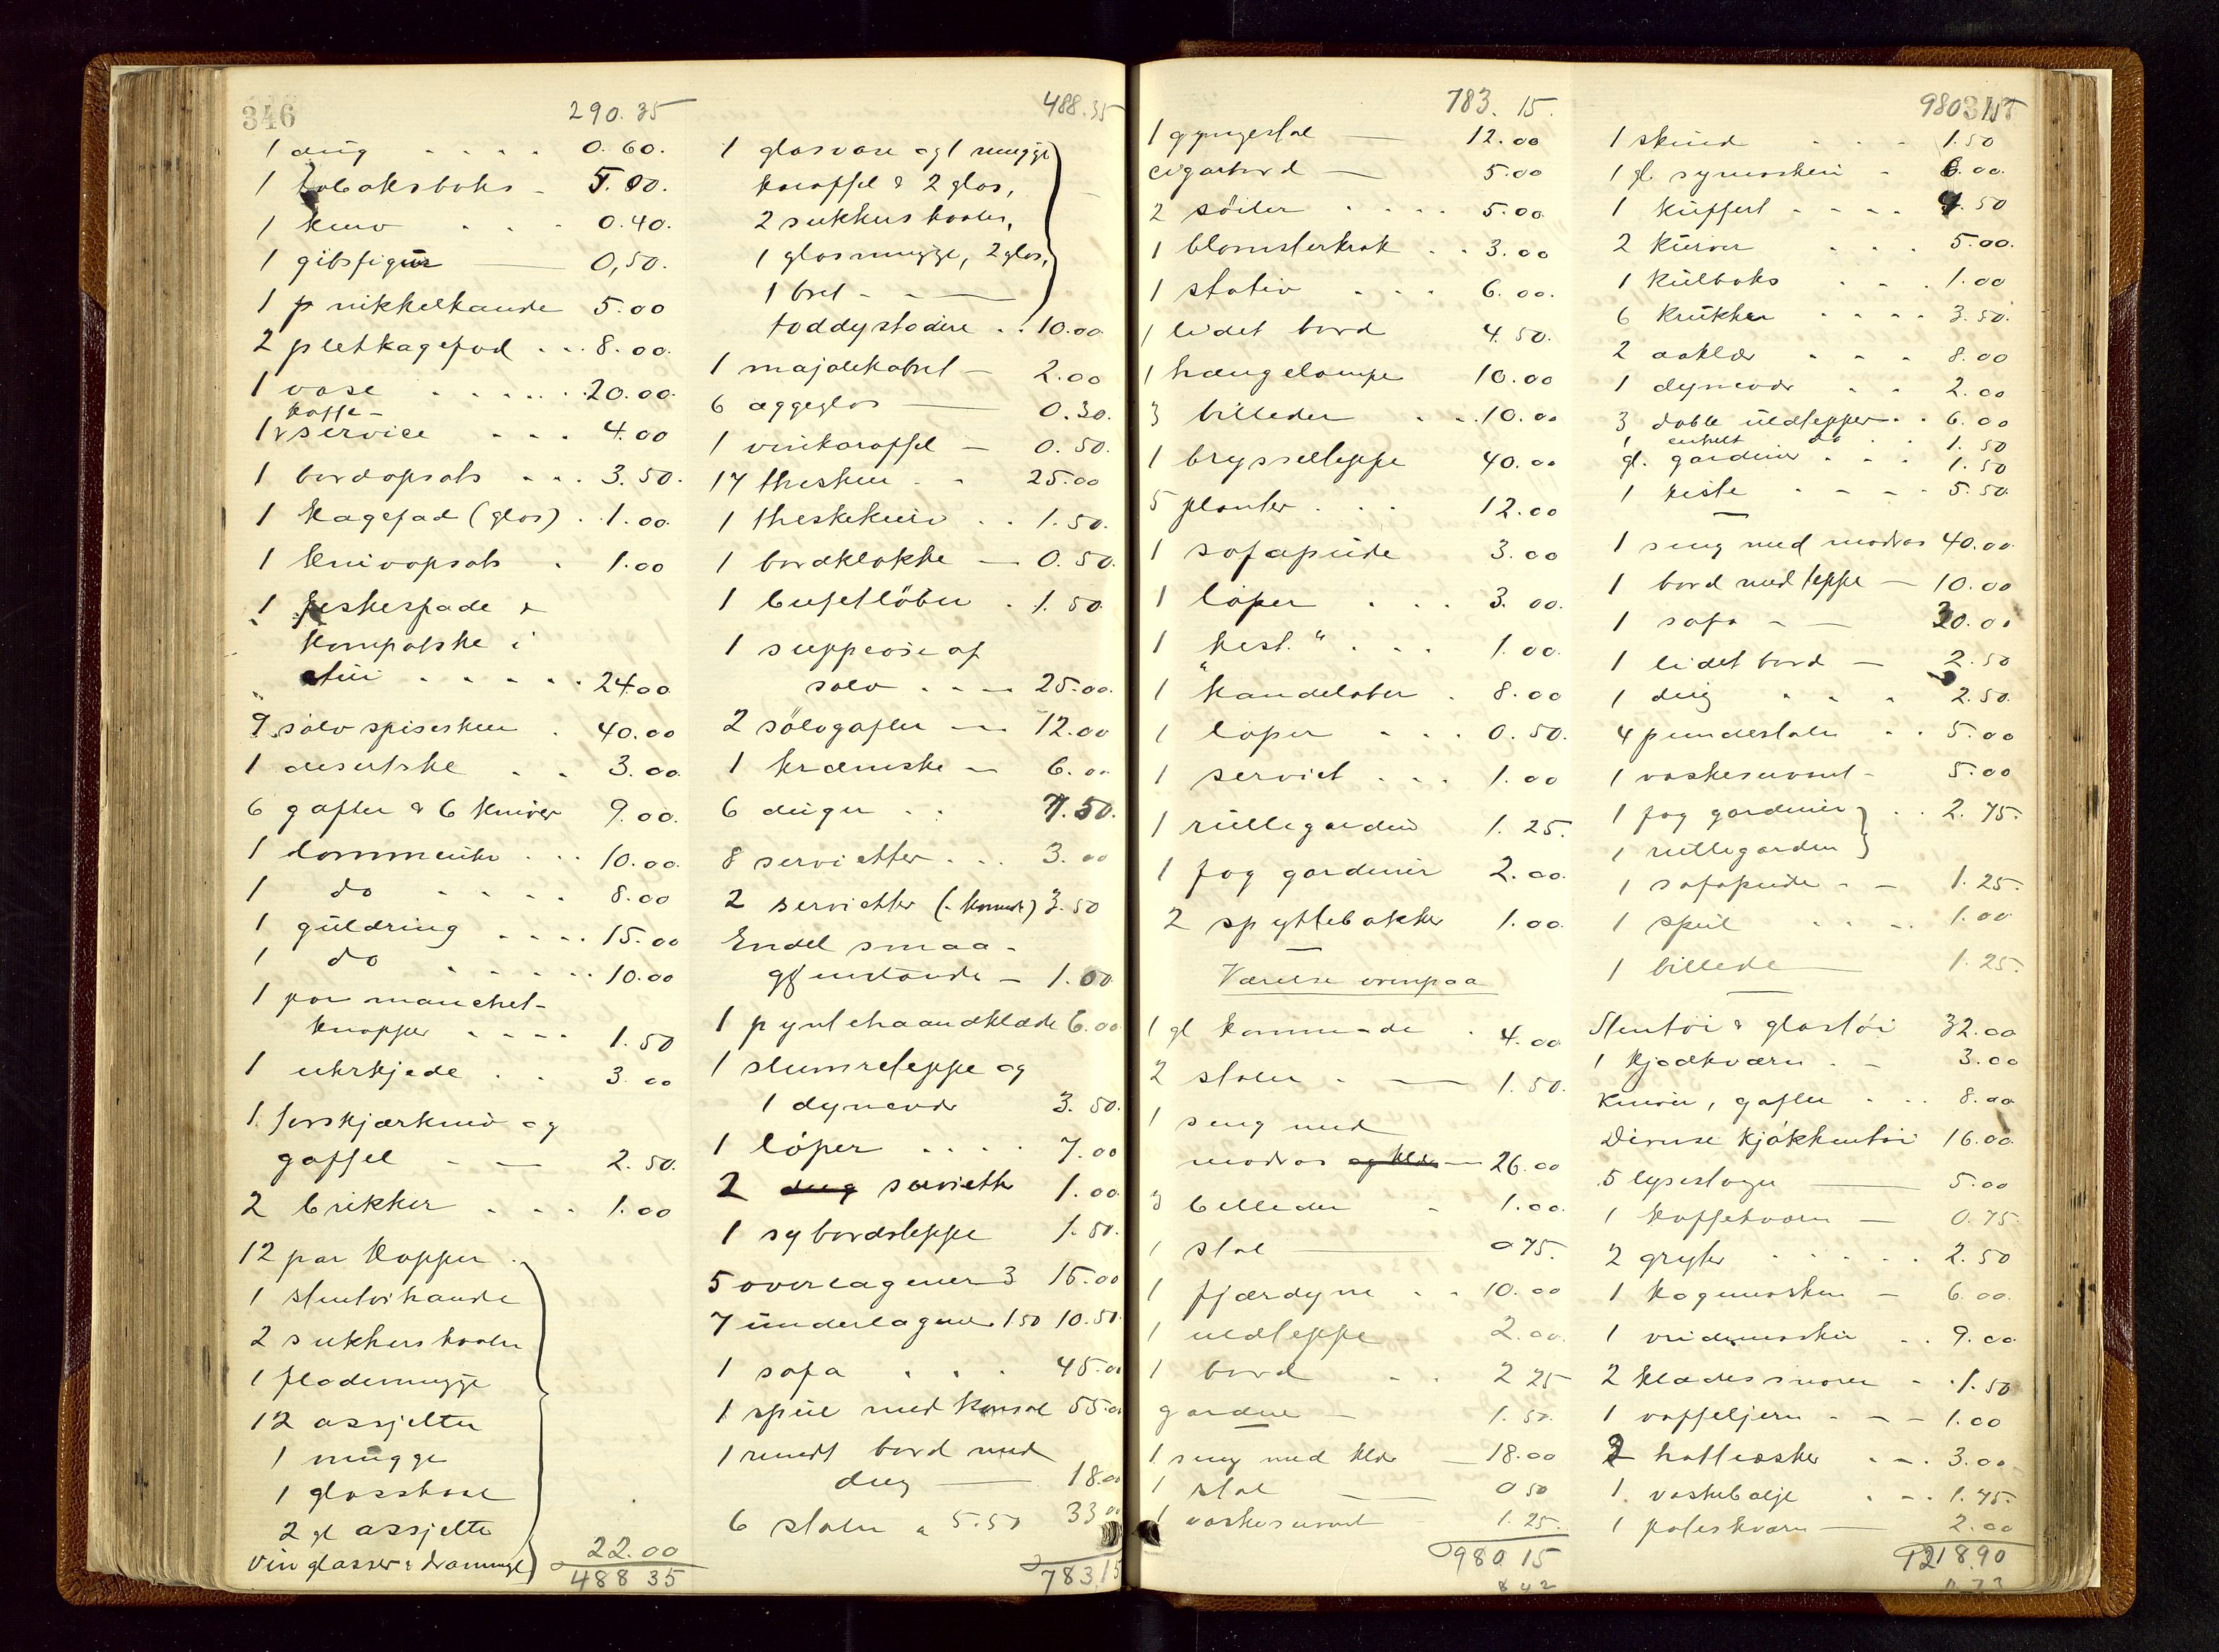 346
290.35
1 dug . . . . 0.60.
1 tobaksboks - 5.00.
1 kurv . . . 0.40.
1 gibsfigur — 0,50.
1 p nikkelkande 5.00
2 pletkagefad . . . 8.00.
1 vase . . . . . . 20.00.
kaffe-
1 service . . . 4.00
1 bordopsats . . . 3.50.
1 kagefad (glas) . . 1.00.
1 knivopsats . 1.00
1 fiskespade &
kompotske i
etui . . . . . 24.00
9 sølv spiseskeer . 40.00
1 desertske . . 3.00.
6 gafler & 6 kniver 9.00.
1 lommeuhr . . . 10.00.
1 do . . . . . 8.00
1 guldring . . . . 15.00
1 do . . . . . 10.00
1 par manchet-
knapper . . . . 1.50
1 uhrkjede . . 3.00
1 forskjærkniv og
gaffel - — 2.50.
2 brikker . . . 1.00
12 par kopper .
1 stentøikande
2 sukkerskaaler
1 flødemugge
12 assjetter
1 mugge
1 glasskaal
2 gl assjetter
Vinglasser & 22.00
488 35
488.35
1 glasvase og 1 mugge
karaffel & 2 glas,
2 sukkerskaaler,
1 glasmugge, 2 glas,
1 bret - - —
toddystadere . . 10.00
1 majolikafat — 2.00
6 æggeglas — 0.30.
1 vinkaraffel — 0.50.
17 theskeer . . 25.00
1 theskekurv . . 1.50.
1 bordklokke — 0.50.
1 bufetløber . 1.50.
1 suppeøse af
sølv . . — 25.00.
2 sølvgafler — 12.00
1 kræmske — 6.00
6 duger . . 7.50.
8 servietter . . . 3.00
2 servietter 3.50
Endel smaa-
gjenstande — 1.00
1 pyntehaandklæde 6.00
1 slumreteppe og
1 dynevår 3.50.
1 løper . . . . 7.00
2 dug servietter 1.00.
1 sybordsteppe 1.50.
5 overlagener 3 15.00
7 underlagener 1.50 10.50.
1 sofa . . . 45.00
1 speil med konsol 55.00
1 rundt bord med
dug — 18.00
6 stoler a 5.50 33 00
783.15
783.15.
1 gyngestol — 12.00
cigarbord — 5.00
2 søiler . . . . 5.00.
1 blomsterkrak . . 3.00
1 stativ . . . 6.00.
1 lidet bord 4.50.
1 hængelampe 10.00
3 billeder . . . 10.00
1 brysselteppe 40.00
5 planter . . . 12.00
1 sofapude 3.00
1 løper . . . 3.00.
1 hest " . . . 1.00.
1 kandelaber . 8.00
1 løper . . . 0.50.
1 serviet . . . 1.00
1 rullegardin 1.25.
1 fag gardiner 2.00.
2 spyttebakker 1.00.
Værelse ovenpaa
1 gl kommode . 4.00
2 stoler . — 1.50.
1 seng med
madras og klær — 26.00
3 billeder - 1.00.
1 stol — 0 75.
1 fjærdyne . . 10.00
1 uldteppe 2.00.
1 bord . . 2 25
gardin — 1.50.
1 seng med klær — 18.00
1 stol — 0 50
1 vaskeservant 1.25.
980.15
842
980.15
1 skind . . . 1.50
1 gl. symaskin - 6.00.
1 kuffert . . . . 4.50
2 kurver . . . 5.00.
1 kulboks . . . 1.00
6 krukker . . . . 3.50.
2 aaklær . . . 8.00
1 dynevår . . 2.00
3 doble uldtepper . . 6.00
1 enkelt do . . 1.50
gl. gardiner . . . 1.50
1 kiste . - - . 5.50.
1 seng med madras 40.00.
1 bord med teppe — 10.00
1 sofa - — 30.00
1 lidet bord — 2.50
1 dug . . . 2.50.
4 pindestoler . . 5.00
1 vaskeservant - 5.00
1 fag gardiner . . 2.75.
1 rullegardin
1 sofapude - - 1.25.
1 speil . . . . 1.00
1 billede — 1.25.
Stentøi & glastøi 32.00
1 kjødkværn . - 3.00
Kniver, gafler . . . 8.00
Diverse kjøkkentøi 16.00.
5 lysestager — 5.00
1 kaffekværn — 0.75.
2 gryter . . . . . 2.50
1 kogemaskin - 6.00.
1 vridemaskin . . 9.00
2 klædessnorer - . 1.50
1 vaffeljern . - - 1.00
2 hatteæsker . . . 3.00
1 vaskebalje . . . 1.45.
1 poteskværn — 2.00
1218.90